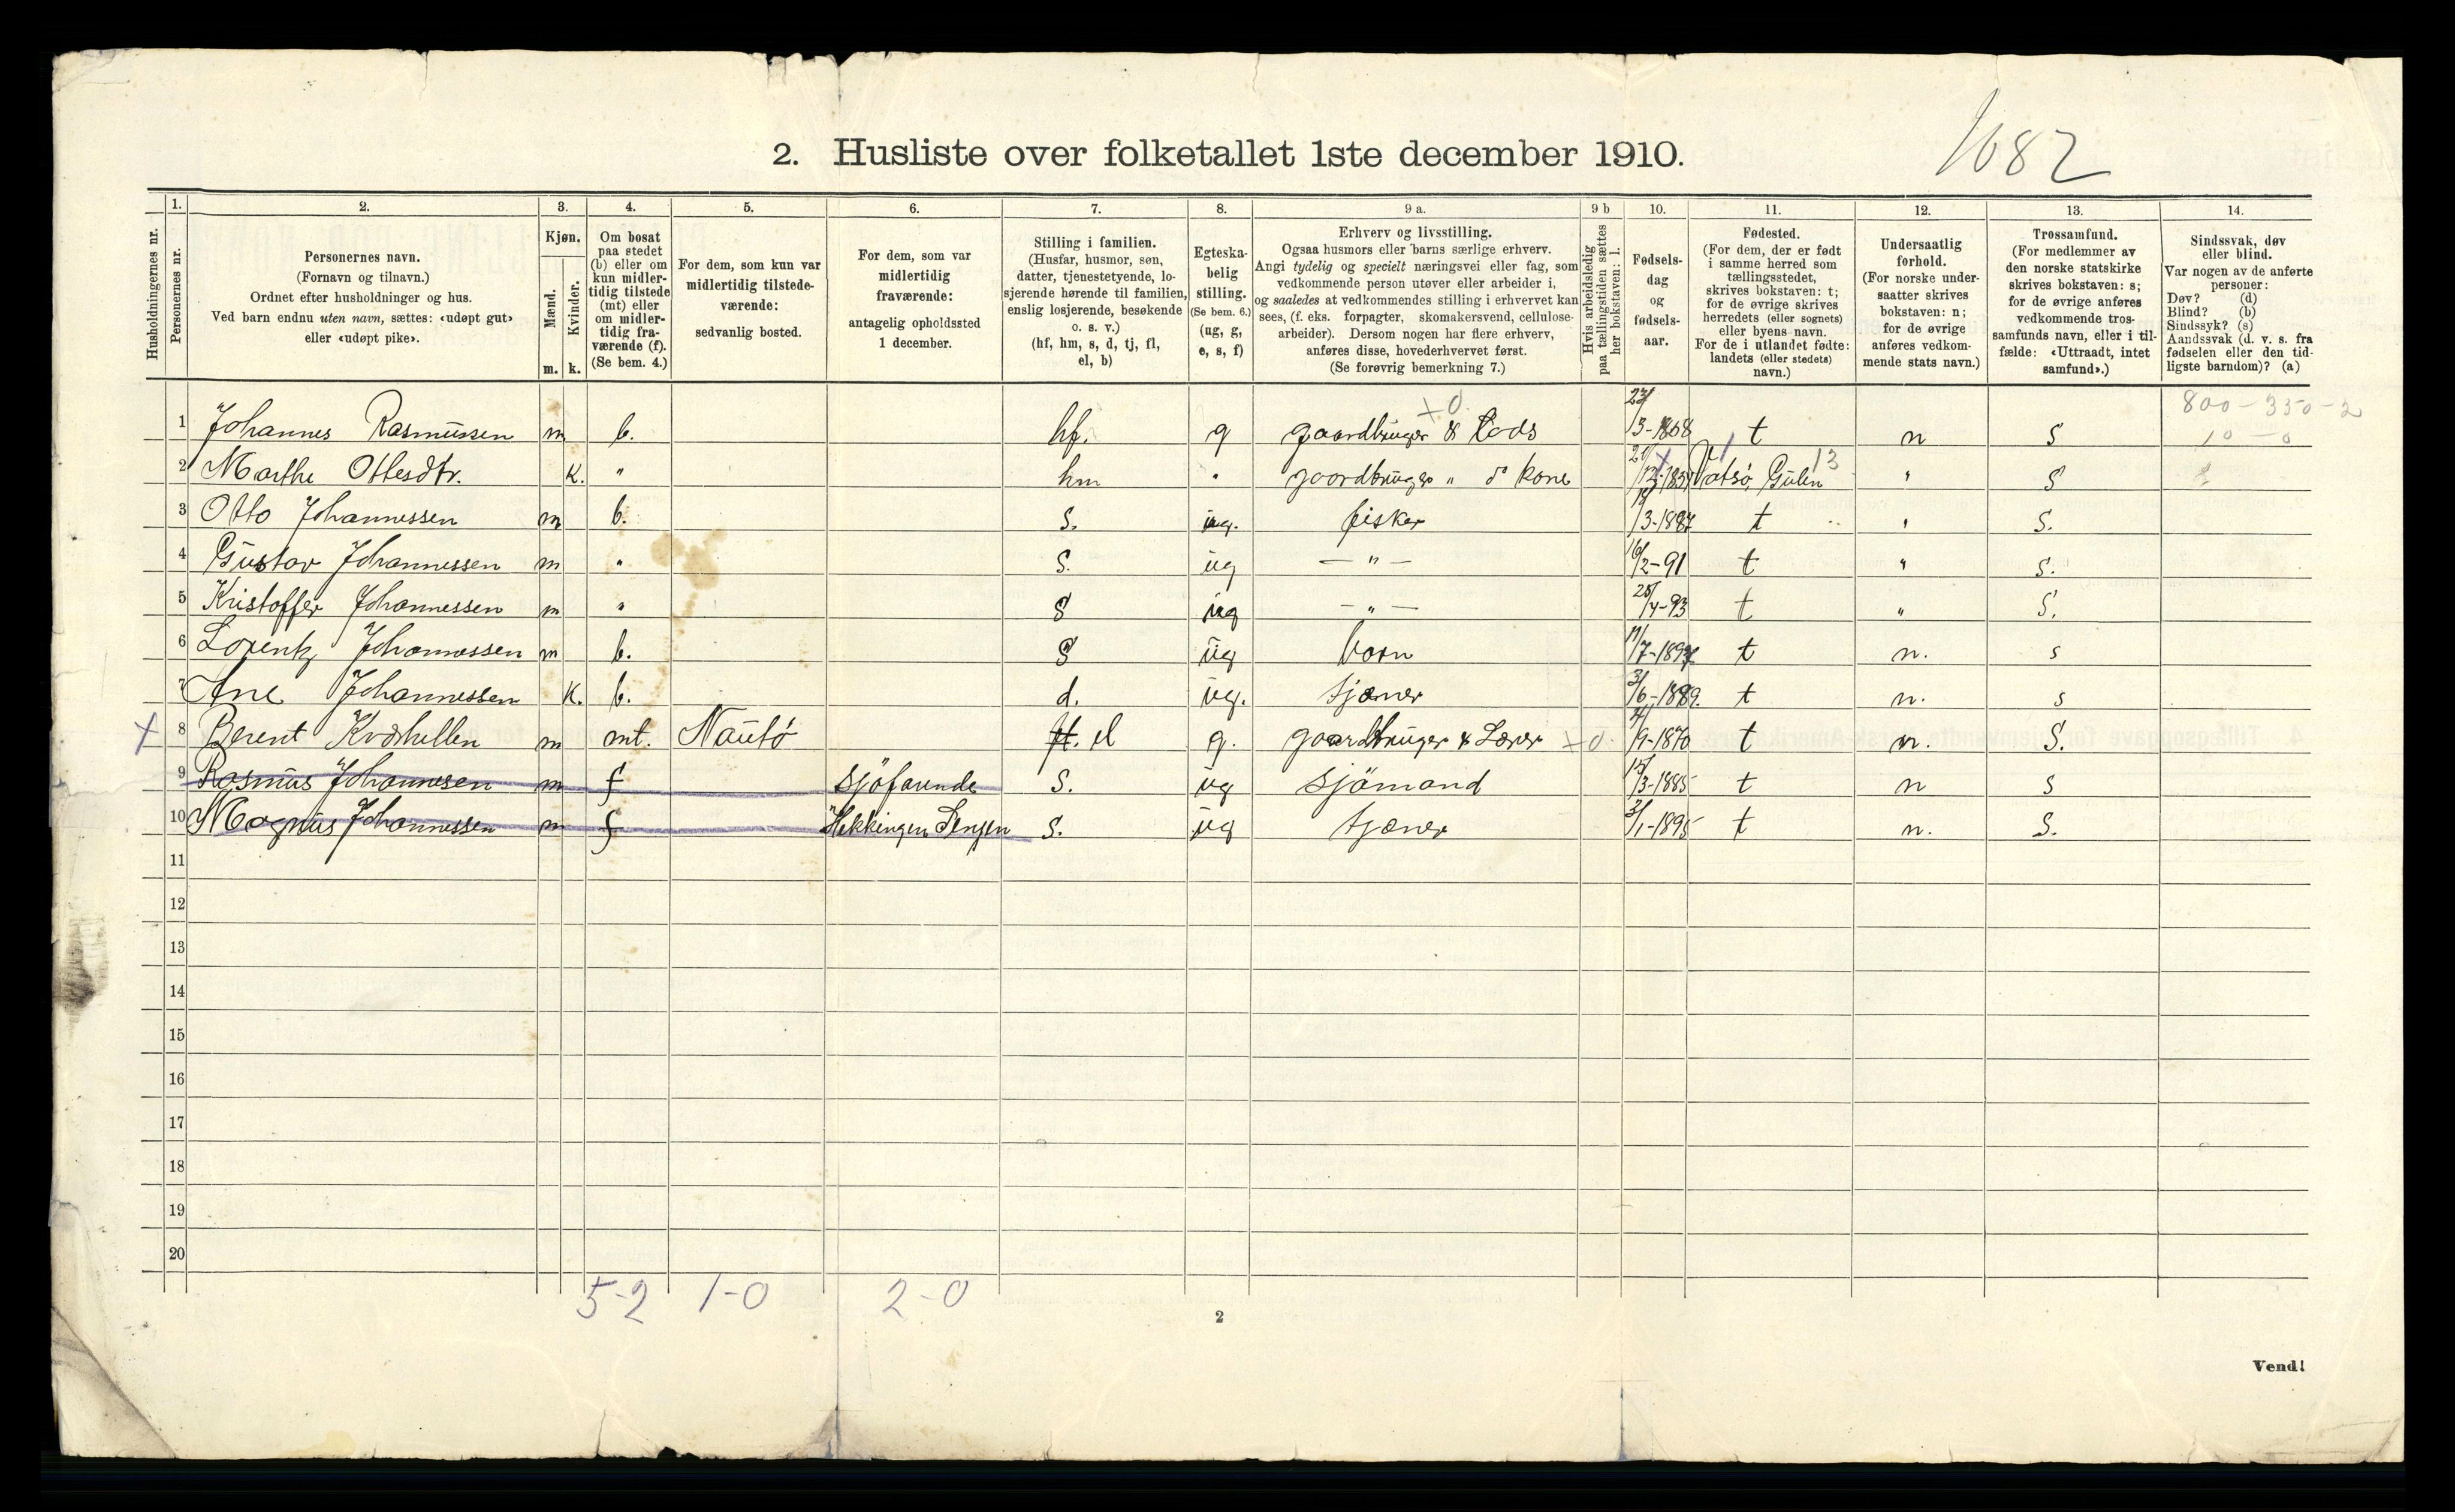 1682
2. Husliste over folketallet 1ste december 1910.
Husholdningernes nr.
1.
Personernes nr.
2.
Personernes navn.
(Fornavn og tilnavn.)
Ordnet efter husholdninger og hus.
Ved barn endnu uten navn, sættes: «udøpt gut»
eller «udøpt pike».
3.
Kjøn.
Mænd.
Kvinder.
m. k.
4.
Om bosat
paa stedet
(b) eller om
kun midler-
tidig tilstede
(mt) eller
om midler-
tidig fra-
værende (f).
(Se bem. 4.)
5.
For dem, som kun var
midlertidig tilstede-
værende:
sedvanlig bosted.
6.
For dem, som var
midlertidig
fraværende:
antagelig opholdssted
1 december.
7.
Stilling i familien.
(Husfar, husmor, søn,
datter, tjenestetyende, lo-
sjerende hørende til familien,
enslig losjerende, besøkende
o. s. v.)
(hf, hm, s, d, tj, fl,
el, b)
8.
Egteska-
belig
stilling.
(Se bem. 6.)
(ug, g,
e, s, f)
9 a.
Erhverv og livsstilling.
Ogsaa husmors eller barns særlige erhverv.
Angi tydelig og specielt næringsvei eller fag, som
vedkommende person utøver eller arbeider i,
og saaledes at vedkommendes stilling i erhvervet kan
sees, (f. eks. forpagter, skomakersvend, cellulose-
arbeider). Dersom nogen har flere erhverv,
anføres disse, hovederhvervet først.
(Se forøvrig bemerkning 7.)
9 b
Hvis arbeidsledig
paa tællingstiden sættes
her bokstaven: l.
10.
Fødsels-
dag
og
fødsels-
aar.
11.
Fødested.
(For dem, der er født
i samme herred som
tællingsstedet,
skrives bokstaven: t;
for de øvrige skrives
herredets (eller sognets)
eller byens navn.
For de i utlandet fødte:
landets (eller stedets)
navn.)
12.
Undersaatlig
forhold.
(For norske under-
saatter skrives
bokstaven: n;
for de øvrige
anføres vedkom-
mende stats navn.)
13.
Trossamfund.
(For medlemmer av
den norske statskirke
skrives bokstaven: s;
for de øvrige anføres
vedkommende tros-
samfunds navn, eller i til-
fælde: «Uttraadt, intet
samfund».)
14.
Sindssvak, døv
eller blind.
Var nogen av de anførte
personer:
Døv? (d)
Blind? (b)
Sindssyk? (s)
Aandssvak (d. v. s. fra
fødselen eller den tid-
ligste barndom)? (a)
1 Johannes Rasmussen m b. hf. g gaardbruger & Lods x 0 23/3-1868 t n S 800-350-2
10-0
2 Marthe Ottesdtr. K. " hm " gaardbruger " kone Gulen 13 " S
3 Otto Johannessen m b. S. ug. fisker /3-1887 t " S.
4 Gustav Johannessen m " S. ug — " — 16/2-91 t " S.
5 Kristoffer Johannessen m " S ug — " — 25/4-93 t " S.
6 Lorentz Johannessen m b. S ug barn 17/7-1897 t n. s
7 Ane Johannessen K. b. d. ug. tjæner 3/6-1889. t n. s
x 8 Berent Kvarhellen m mt. Nautø el g. gaardbruger & Lærer x 0 /9-1870 t n. S.
9 Rasmus Johannesen m f sjöfarende S. ug sjömand 15/3-1885 t n s
10 Magnus Johannessen m f Hekkingen Senjen S. ug tjæner 3/1-1895 t n. S.
11
12
13
14
15
16
17
18
19
20
5-2 1-0 2-0
2
Vend!